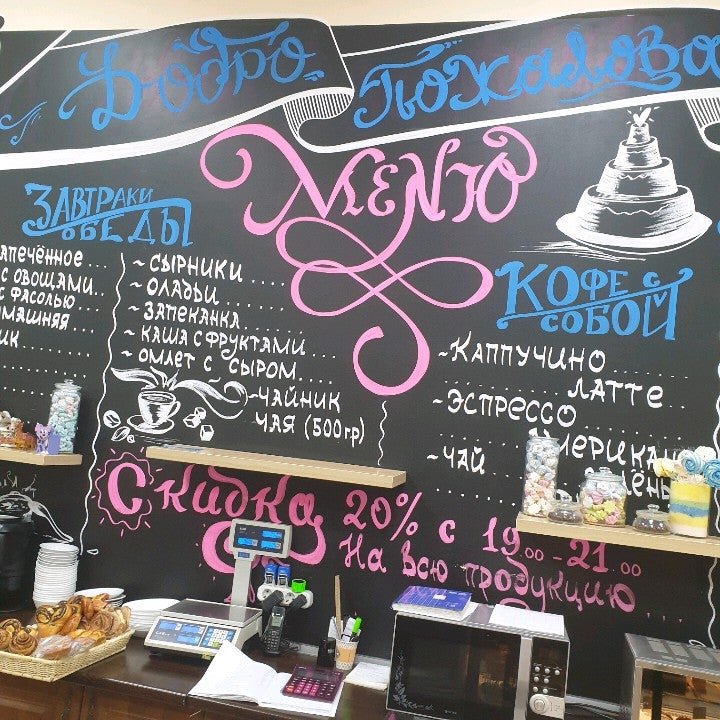 Добро Пожалова
Меню
ЗАВТРАКИ
ОБЕДЫ
апечённое....
с овощами..
с фасолью....
омашняя....
ик
~сырники.....
~оладьи.......
~запеканка.....
~каша с фруктами....
~омлет с сыром....
~чайник
чая (500гр)
КОФЕ С
СОБОЙ
~Каппучино
латте
~эспрессо
американ
~чай
зелёны
Скидка 20% с 19.00 - 21.00
На всю продукцию....